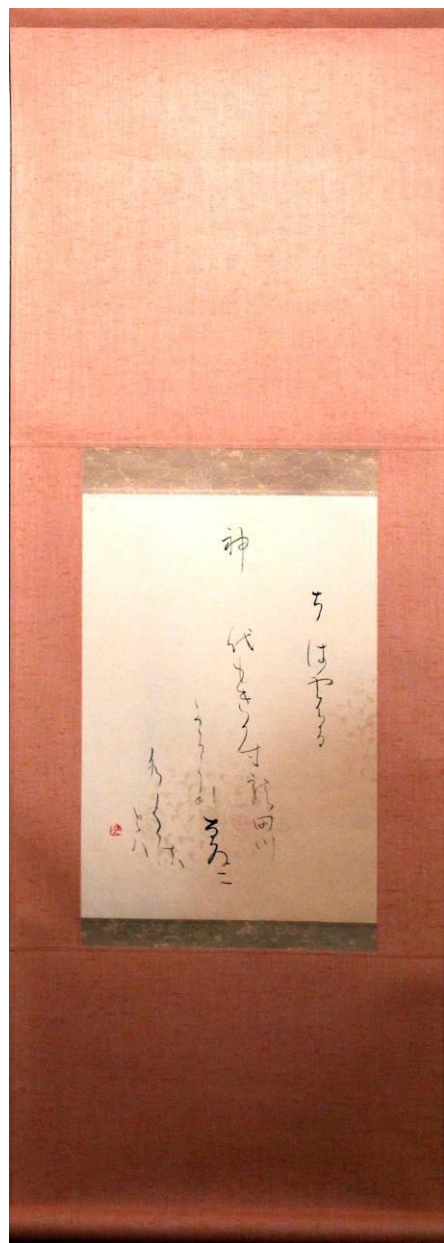 ちはやふる
神代もきか寸龍田川
からくれなゐニ
水くゝる
とハ